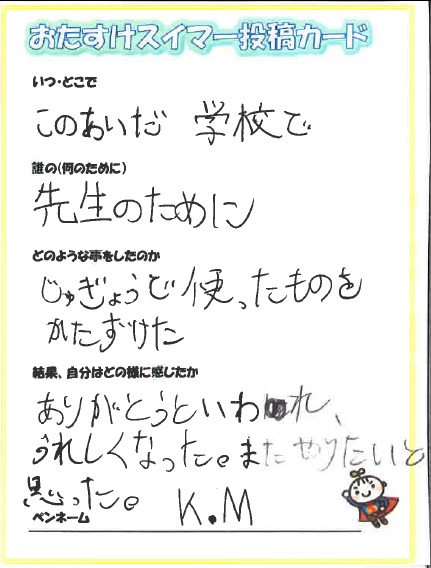 おたすけスイマー投稿カード
いつ・どこで
このあいだ 学校で
誰の(何のために)
先生のために
どのような事をしたのか
じゅぎょうで使ったものを
かたずけた
結果、自分はどの様に感じたか
ありがとうといわれ、
うれしくなった。またやりたいと
思った。
ペンネーム K.M